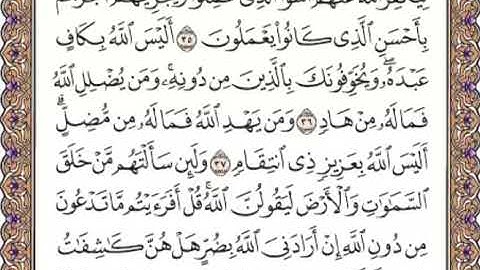 بِأَحْسَنِ ٱلَّذِى كَانُوا۟ يَعْمَلُونَ ٣٥ أَلَيْسَ ٱللَّهُ بِكَافٍ
عَبْدَهُۥ ۖ وَيُخَوِّفُونَكَ بِٱلَّذِينَ مِن دُونِهِۦ ۚ وَمَن يُضْلِلِ ٱللَّهُ
فَمَا لَهُۥ مِنْ هَادٍ ٣٦ وَمَن يَهْدِ ٱللَّهُ فَمَا لَهُۥ مِن مُّضِلٍّ ۗ
أَلَيْسَ ٱللَّهُ بِعَزِيزٍ ذِى ٱنتِقَامٍ ٣٧ وَلَئِن سَأَلْتَهُم مَّنْ خَلَقَ
ٱلسَّمَـٰوَٰتِ وَٱلْأَرْضَ لَيَقُولُنَّ ٱللَّهُ ۚ قُلْ أَفَرَءَيْتُم مَّا تَدْعُونَ
مِن دُونِ ٱللَّهِ إِنْ أَرَادَنِىَ ٱللَّهُ بِضُرٍّ هَلْ هُنَّ كَـٰشِفَـٰتُ